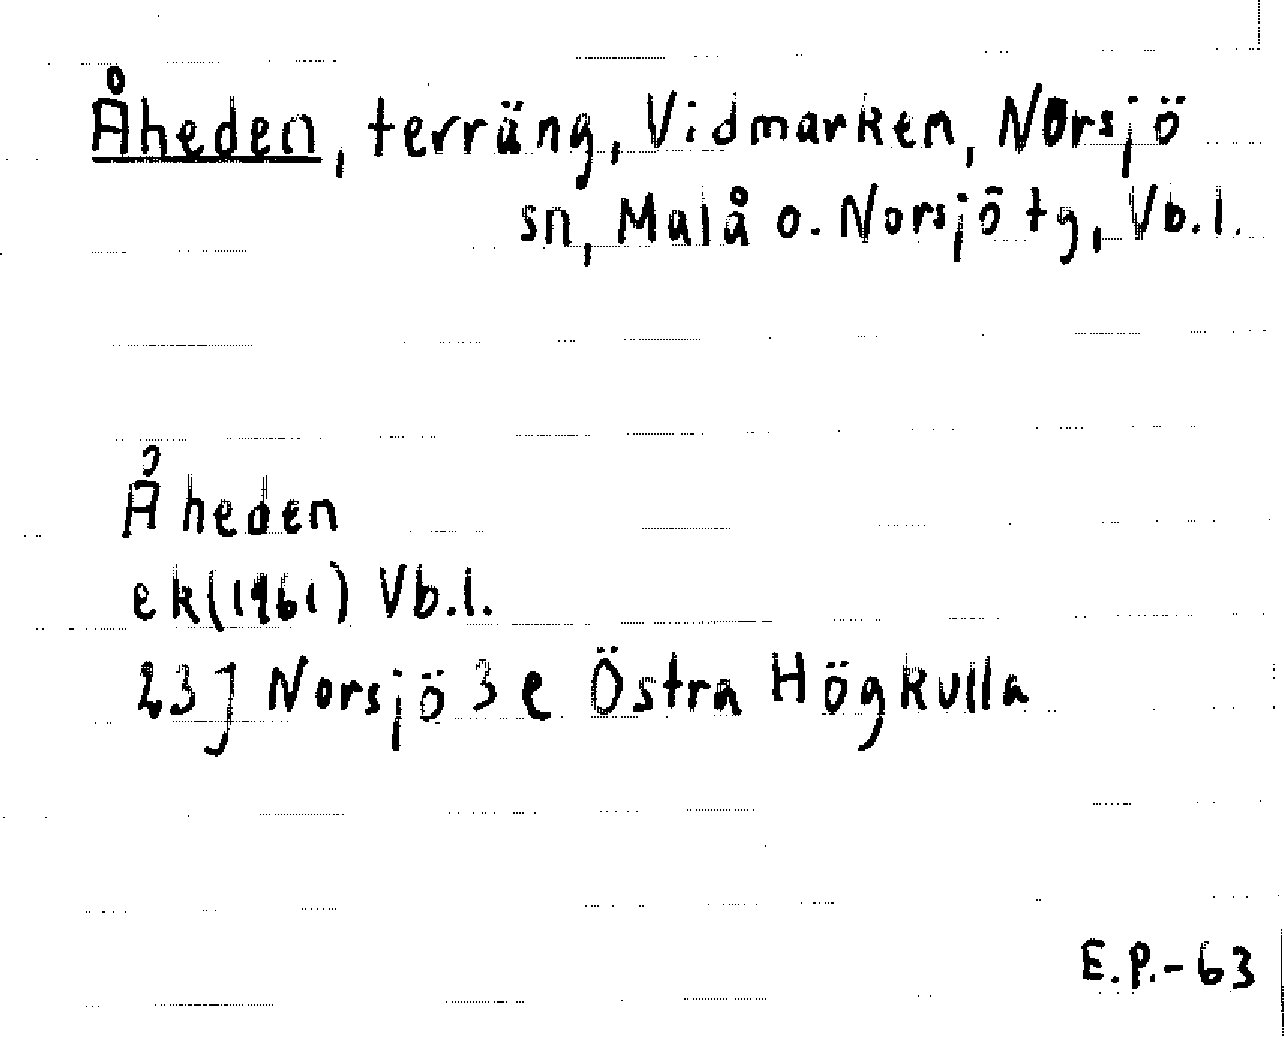 Åheden, terräng, Vidmarken, Norsjö
sn, Malå o. Norsjö tg, Vb.l.
Åheden
ek(1961) Vb.l.
23J Norsjö 3e Östra Högkulla
E.P.-63